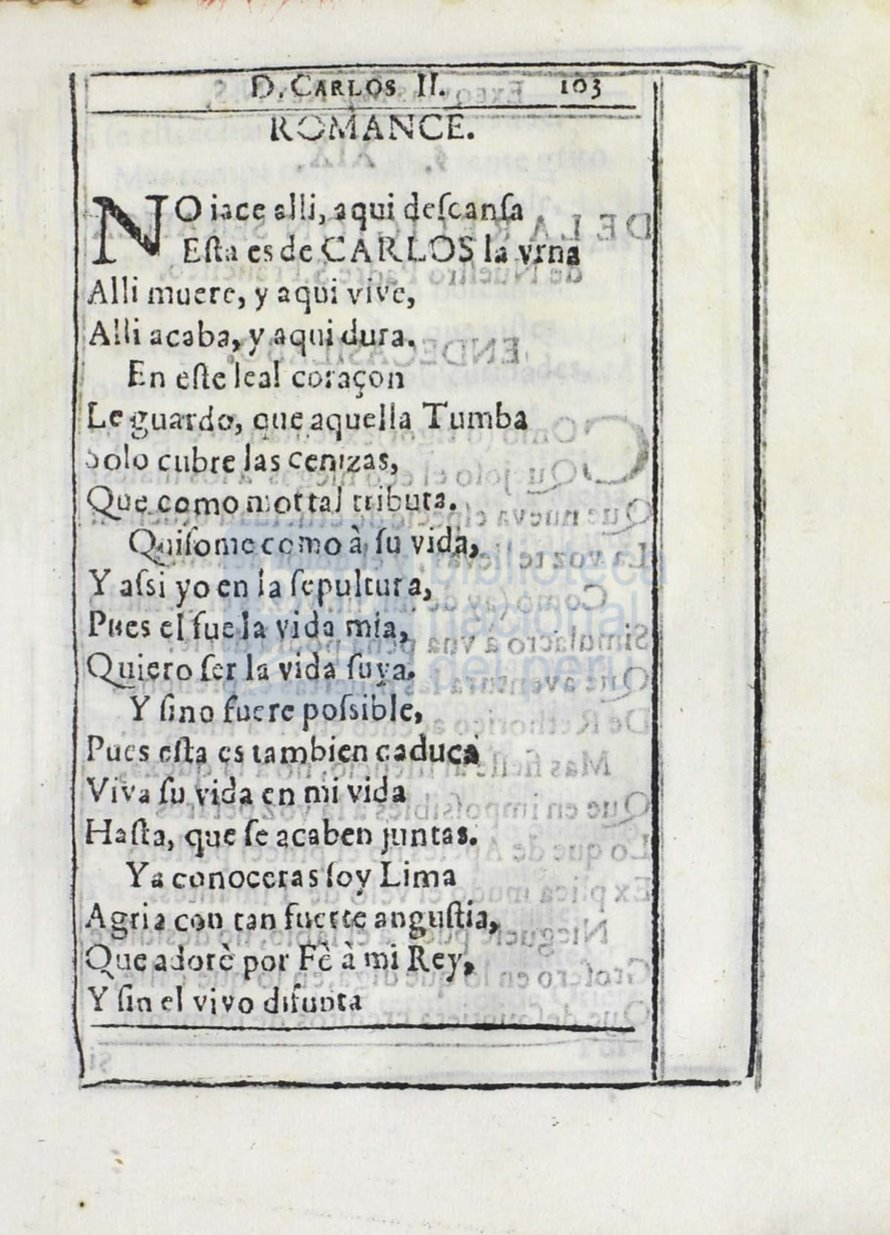 D. CARLOS II. 103
ROMANCE.
NO iace alli, aqui descansa
Esta es de CARLOS la vrna
Alli muere, y aqui vive,
Alli acaba, y aqui dura.
En este leal coraçon
Le guardo, que aquella Tumba
Solo cubre las cenizas,
Que como mortal tributa.
Quisome como à su vida,
Y assi yo en la sepultura,
Pues el fue la vida mia,
Quiero ser la vida suya.
Y sino fuere possible,
Pues esta es tambien caduca
Viva su vida en mi vida
Hasta, que se acaben juntas.
Ya conoceras soy Lima
Agria con tan fuerte angustia,
Que adorè por Fè à mi Rey,
Y sin el vivo difunta
biblioteca
nacional
del perú